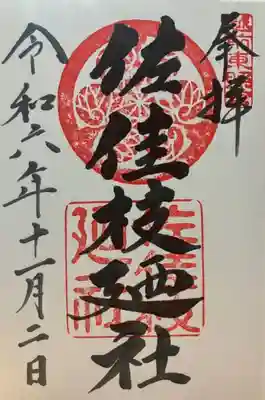 奉拝
佐佳枝廼社
令和六年十一月二日
佐佳枝
廼社